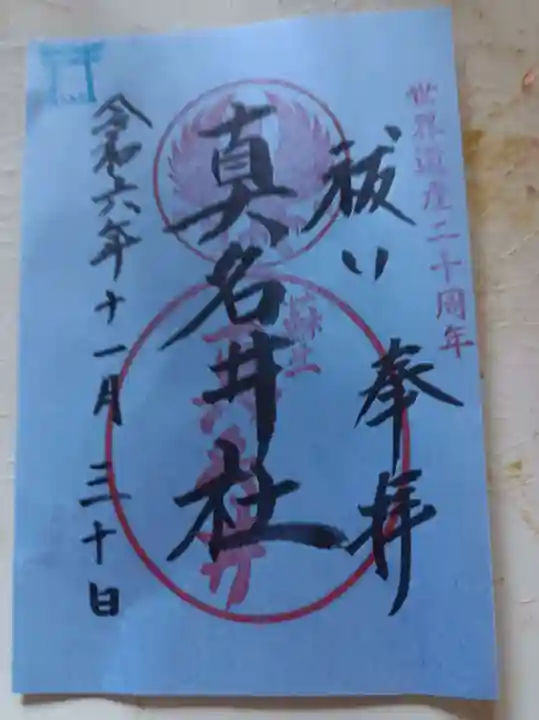 世界遺産二十周年
祓い
奉拝
真名井社
蘇生
令和六年十一月三十日